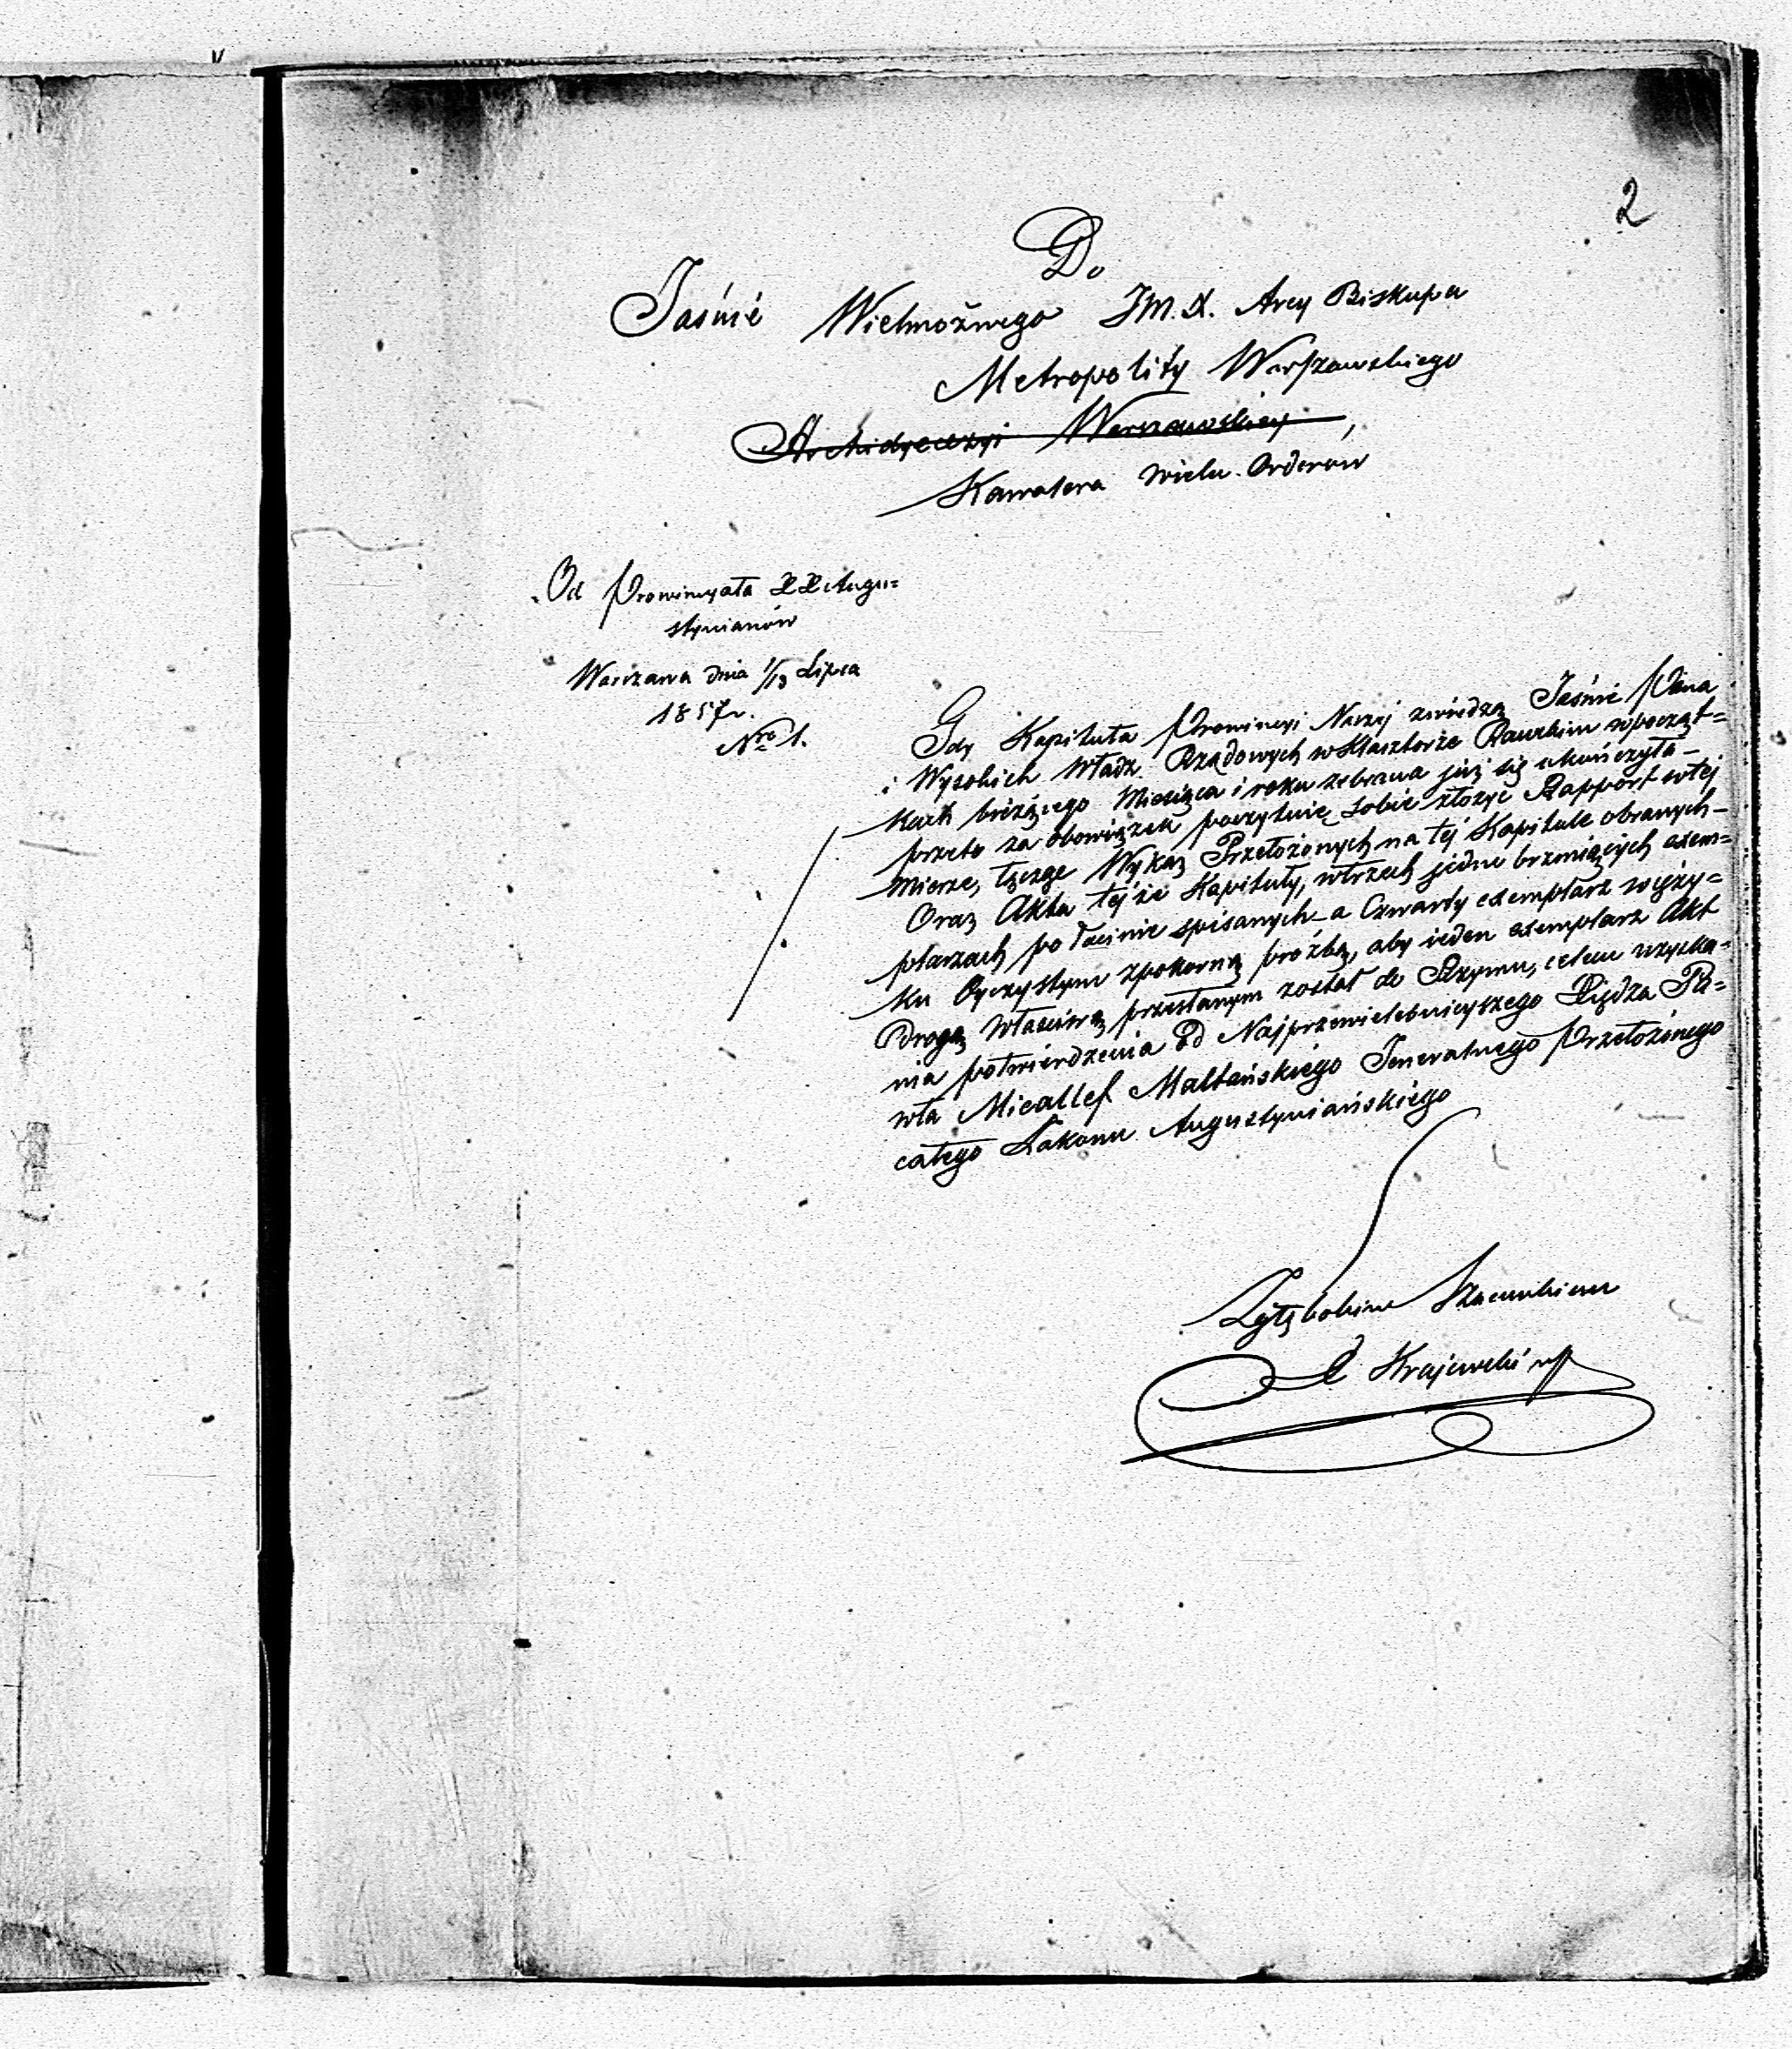 2
Do
Jaśnie Wielmożnego JM. X. Arcy Biskupa
Metropolity Warszawskiego
Archidyecezyi Warszawskiey,
Kawalera wielu Orderów
Od Prowincyała XX Augu=
stynianów
Warszawa dnia 1/13 Lipca
1857 r.
Nro 1.
Gdy Kapituła Prowincyi Naszej zwiedzą Jaśnie Pana
i Wysokich Władz Rządowych w Klasztorze Rawskim wpocząt=
kach bieżącego Miesiąca i roku zebrana już się ukończyła –
przeto za obowiązek poczytuię sobie złożyć Rapport wtej
mierze, łączę Wykaz Przełożonych na tej Kapitule obranych –
Oraz Akta tejże Kapituły, wtrzech jedno brzmiących exem=
plarzach po łacinie spisanych – a Czwarty exemplarz więzy=
ku Oyczystym zpokorną prożbą, aby ieden exemplarz Akt
Drogą Właściwą przesłanym został do Rzymu, celem uzyska=
nia potwierdzenia Od Najprzewielebnieyszego Xiędza Pa=
wła Micallef Maltańskiego Jeneralnego Przełożonego
całego Zakonu Augustyniańskiego
Zgłębokim Szacunkiem
X Krajewski